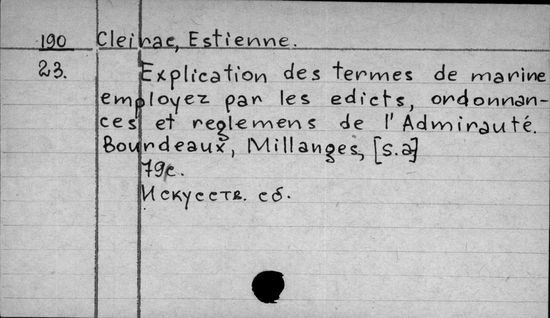 190 Cleirac, Estienne.
23. Explication des termes de marine
employez par les edicts, ordonnan-
ces et reglemens de l'Admirauté.
Bourdeaux, Millanges, [s.a]
79c.
Искусств. сб.